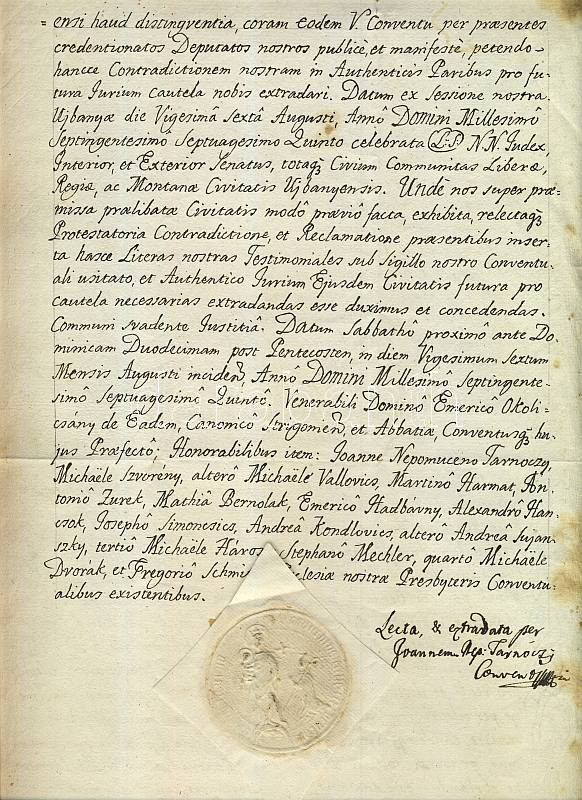 = ensi haud distingventia, coram eodem V. Conventu per præsentes
credentionatos Deputatos nostros publicè, et manifestè, petendo-
hancce Contradictionem nostram in Authenticis Paribus pro fu-
tura Iurium cautela nobis extradari. Datum ex Sessione nostra
Ujbanyæ die Vigesimâ Sextâ Augusti, Annô Domini Millesimô
Septingentesimô Septuagesimo Quinto celebrata (L.S.) N N. Iudex,
Interior, et Exterior Senatus, totaq3 Civium Communitas Liberæ,
Regiæ, ac Montanæ Civitatis Ujbanyensis. Unde nos super præ-
missa prælibatæ Civitatis modô præviô facta, exhibita, relectaq3
Protestatoria Contradictione, et Reclamatione præsentibus inser-
ta hasce Literas nostras Testimoniales sub Sigillo nostro Conventu-
ali usitato, et Authentico Iurium Ejusdem Civitatis futura pro
cautela necessarias extradandas esse duximus et concedendas.
Communi svadente Iustitiâ. Datum Sabbathô proximô ante Do-
minicam Duodecimam post Pentecosten, in diem Vigesimum Sextum
Mensis Augusti inciden̄, Annô Domini Millesimô Septingente-
simô Septuagesimô Quintô. Venerabili Dominô Emericô Okoli-
csány de Eadem, Canonicô Strigonien̄, et Abbatiæ, Conventusq3 hu-
jus Præfectô; Honorabilibus item: Ioanne Nepomuceno Tarnoczy,
Michaële Szverény, alterô Michaële Vallovics, Martinô Harmat, An-
toniô Zurek, Mathiâ Bernolak, Emericô Hadbávny, Alexandrô Han-
csok, Iosephô Simoncsics, Andreâ Kondlovics, alterô Andreâ Sujan-
szky, tertiô Michaële Háros, Stephanô Mechler, quartô Michaële
Dvorák, et Gregoriô Schmi Eclesiæ nostræ Presbyteris Conventu-
alibus existentibus.
Lecta, & extradata per
Joannem Nep: Tarnóczy